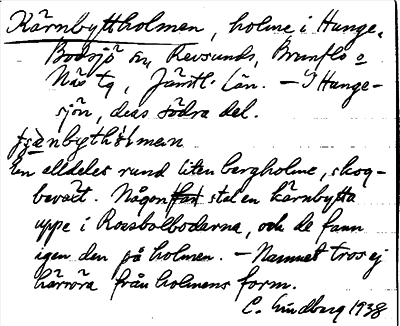 Kärnbyttholmen, holme i Hunge,
Bodsjö sn, Revsunds, Brunflo o
Näs tg, Jämtl. län. – I Hunge-
sjön, dess södra del.
En alldeles rund liten bergholme, skog-
beväxt. Någon stal en kärnbytta
uppe i Rossbolbodarna, och de fann
igen den på holmen. – Namnet tros ej
härröra från holmens form.
C. Lindberg 1938